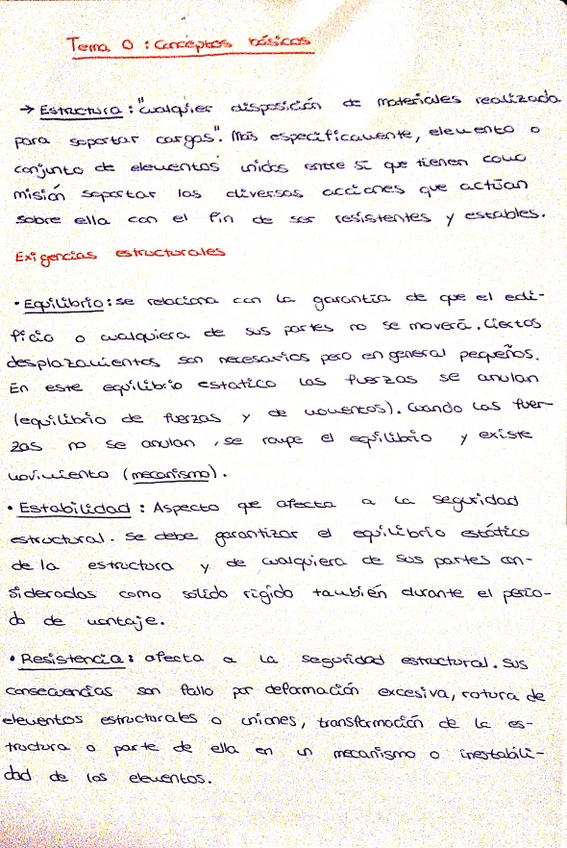 Tema 0 : Conceptos básicos
→ Estructura : "cualquier disposición de materiales realizada
para soportar cargas". Más especificamente, elemento o
conjunto de elementos unidos entre sí que tienen como
misión soportar las diversas acciones que actúan
sobre ella con el fin de ser resistentes y estables.
Exigencias estructurales
• Equilibrio : se relaciona con la garantía de que el edi-
ficio o cualquiera de sus partes no se moverá. Ciertos
desplazamientos son necesarios pero en general pequeños.
En este equilibrio estatico las fuerzas se anulan
(equilibrio de fuerzas y de momentos). Cuando las fuer-
zas no se anulan , se rompe el equilibrio y existe
movimiento (mecanismo).
• Estabilidad : Aspecto que afecta a la seguridad
estructural. Se debe garantizar el equilibrio estático
de la estructura y de cualquiera de sus partes con-
sideradas como sólido rígido también durante el perio-
do de montaje.
• Resistencia : afecta a la seguridad estructural. Sus
consecuencias son fallo por deformación excesiva, rotura de
elementos estructurales o uniones, transformación de la es-
tructura o parte de ella en un mecanismo o inestabili-
dad de los elementos.